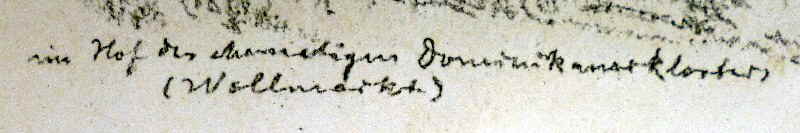 im Hof des ehemaligen Dominikanerklosters
(Wollmarkt)